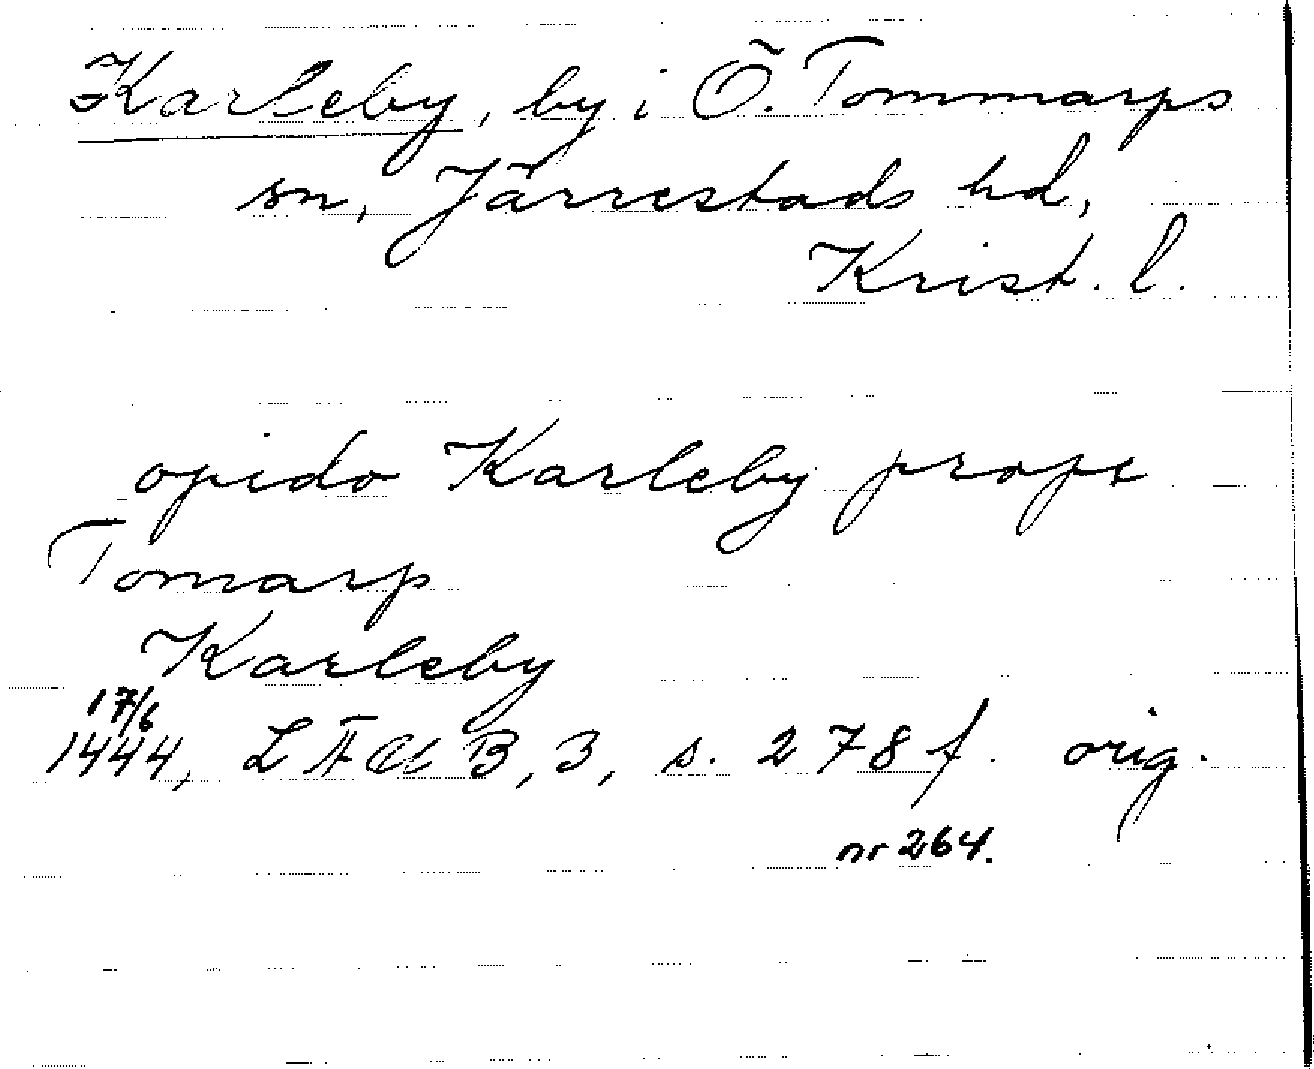 Karleby, by i Ö. Tommarps
sn, Järrestads hd,
Krist. l.
opido Karleby prope
Tomarp
Karleby
17/6
1444, LÄUB, 3, s. 278 f. orig.
nr 264.